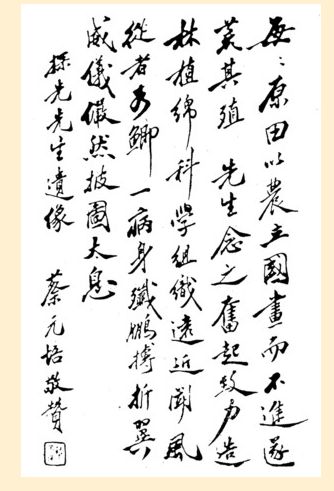 無〻原田以農立國畫而不進遂
荒其殖 先生念之奮起致力造
林植綿科學組織遠近聞風
從者如鯽一病身殲鵬摶折翼
威儀儼然披圖大息
探先先生遺像
蔡元培敬贊